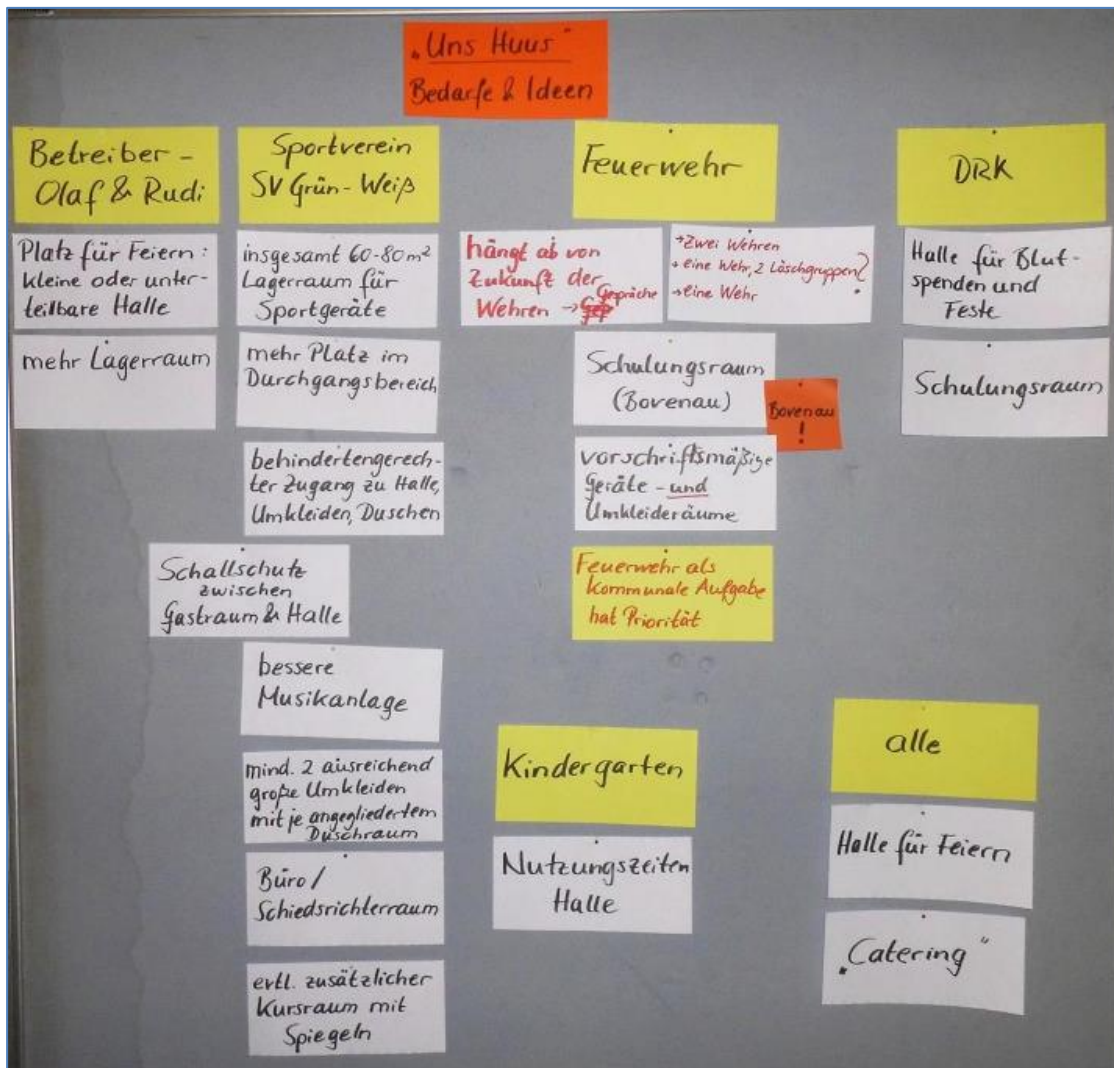 „Uns Huus"
Bedarfe & Ideen
Betreiber -
Olaf & Rudi
Platz für Feiern :
kleine oder unter-
teilbare Halle
mehr Lagerraum
Sportverein
SV Grün-Weiß
insgesamt 60-80m²
Lagerraum für
Sportgeräte
mehr Platz im
Durchgangsbereich
behindertengerech-
ter Zugang zu Halle,
Umkleiden, Duschen
Schallschutz
zwischen
Gastraum & Halle
bessere
Musikanlage
mind. 2 ausreichend
große Umkleiden
mit je angegliedertem
Duschraum
Büro/
Schiedsrichterraum
evtl. zusätzlicher
Kursraum mit
Spiegeln
Feuerwehr
hängt ab von
Zukunft der
Wehren → Gespräche
→ Zwei Wehren
→ eine Wehr, 2 Löschgruppen ?
→ eine Wehr
Schulungsraum
(Bovenau)
Bovenau
!
vorschriftsmäßige
Geräte - und
Umkleideräume
Feuerwehr als
kommunale Aufgabe
hat Priorität
Kindergarten
Nutzungszeiten
Halle
DRK
Halle für Blut-
spenden und
Feste
Schulungsraum
alle
Halle für Feiern
„Catering"